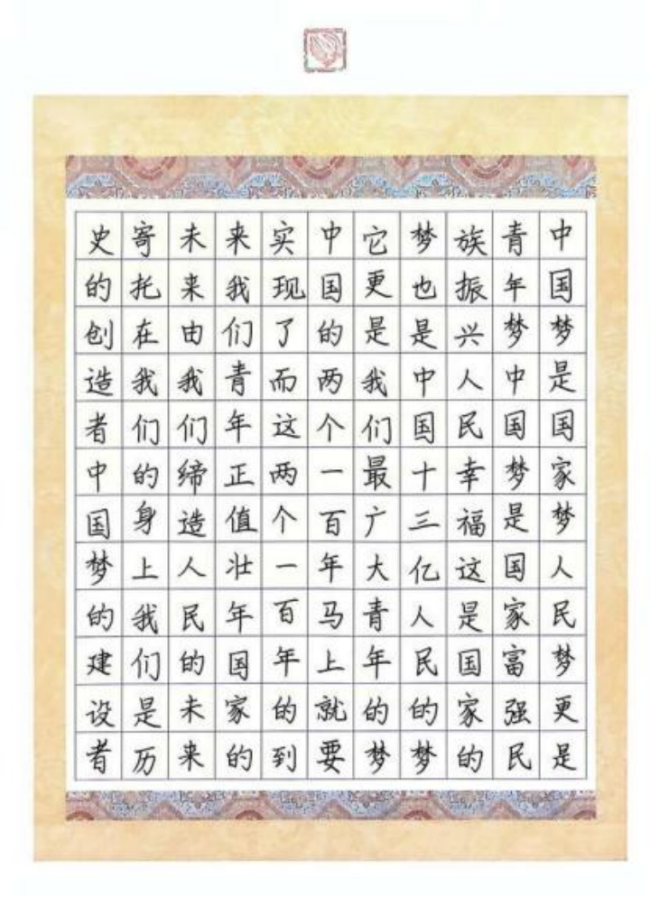 中国梦是国家梦人民梦更是
青年梦中国梦是国家富强民
族振兴人民幸福这是国家的
梦也是中国十三亿人民的梦
它更是我们最广大青年的梦
中国的两个一百年马上就要
实现了而这两个一百年的到
来我们青年正值壮年国家的
未来由我们缔造人民的未来
寄托在我们的身上我们是历
史的创造者中国梦的建设者